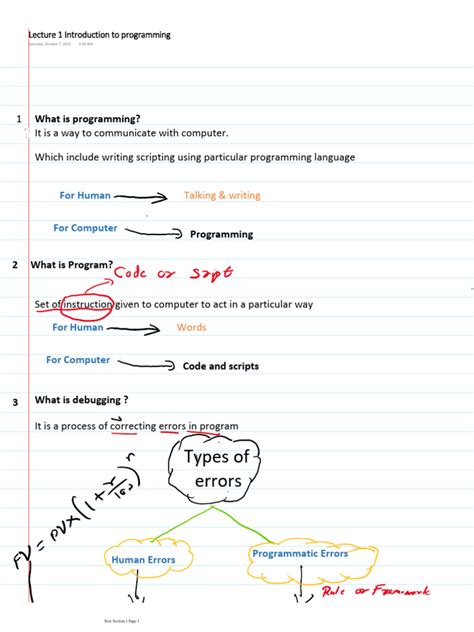 Lecture 1 Introduction to programming
Saturday, October 7, 2023
1 What is programming?
It is a way to communicate with computer.
Which include writing scripting using particular programming language
For Human Talking & writing
For Computer Programming
2 What is Program? Code or
Set of instruction given to computer to act in a particular way
For Human Words
For Computer Code and scripts
3 What is debugging ?
It is a process of correcting errors in program
Types of
errors
FV = PVX(1+r/100)
Human Errors Programmatic Errors
Rule or
New Section 1 Page 1